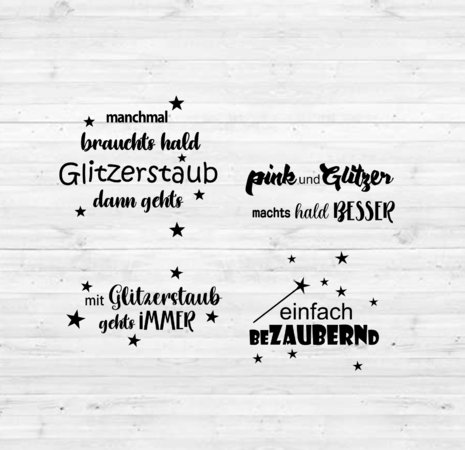 manchmal
brauchts hald
Glitzerstaub
dann gehts
pink und Glitzer
machts hald BESSER
mit Glitzerstaub
gehts iMMER
einfach
BEZAUBERND